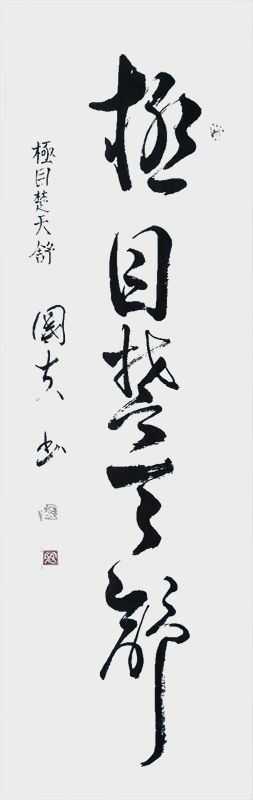 極目楚天舒
極目楚天舒
國真书